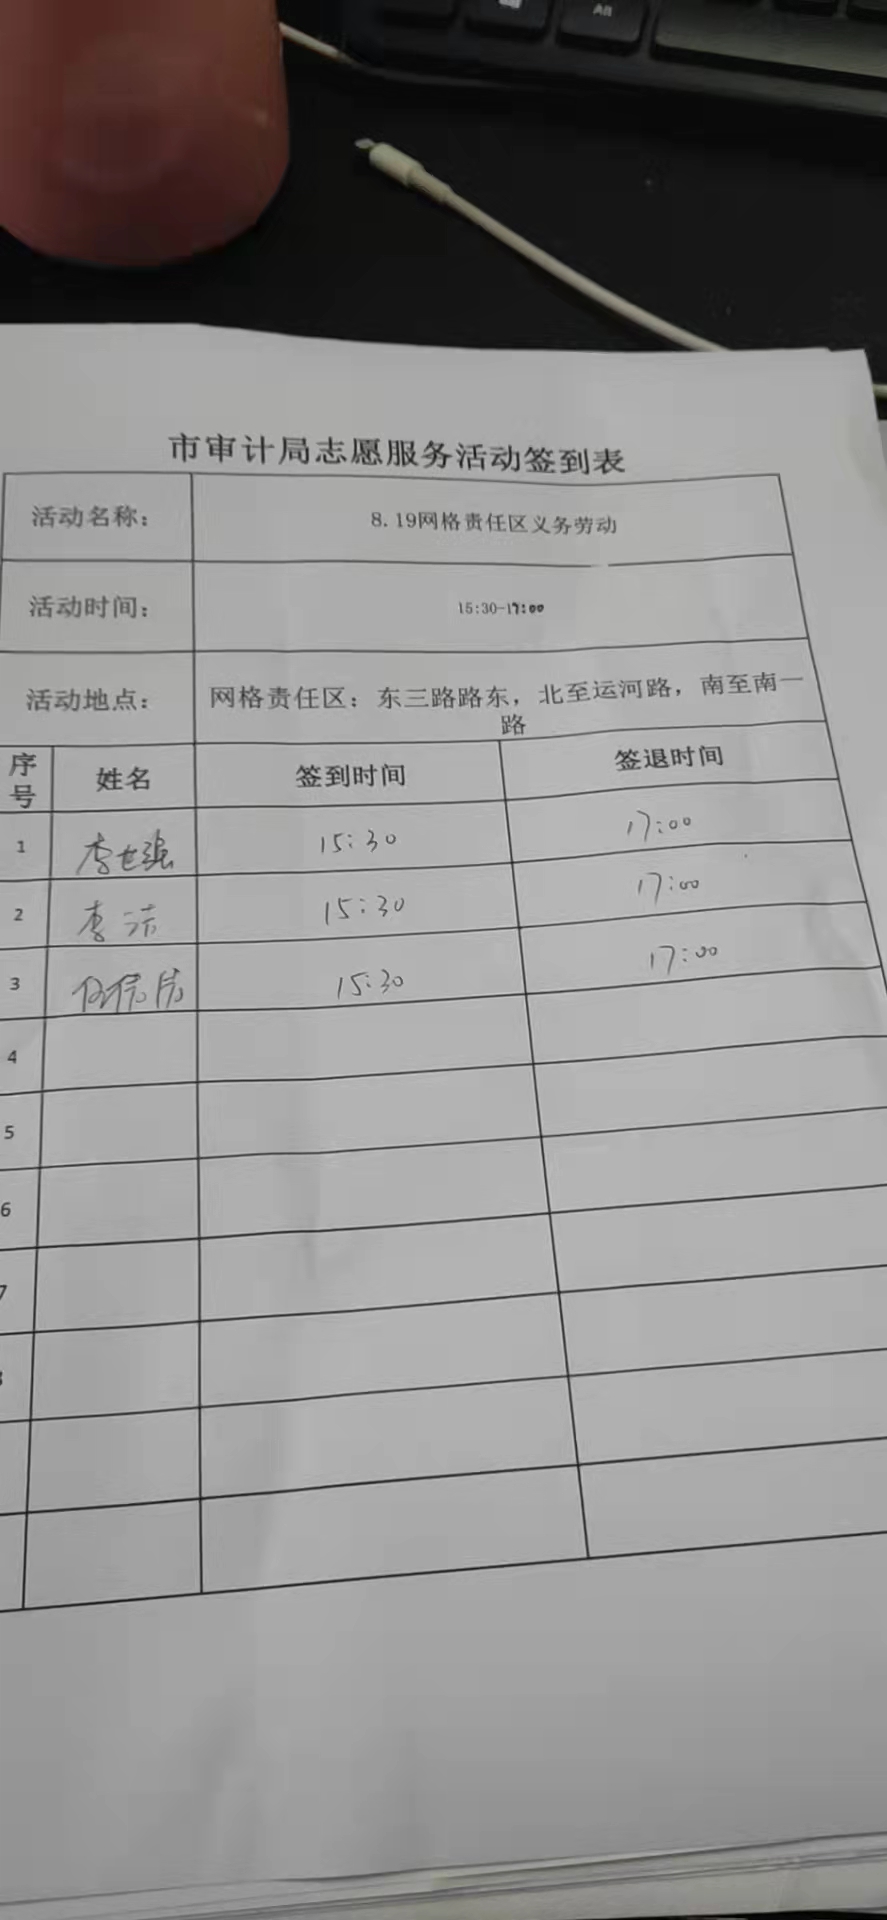 市审计局志愿服务活动签到表
活动名称： 8.19网格责任区义务劳动
活动时间： 15:30-17:00
活动地点： 网格责任区：东三路路东，北至运河路，南至南一
路
序号 姓名 签到时间 签退时间
1 李世强 15:30 17:00
2 李洁 15:30 17:00
3 15:30 17:00
4
5
6
7